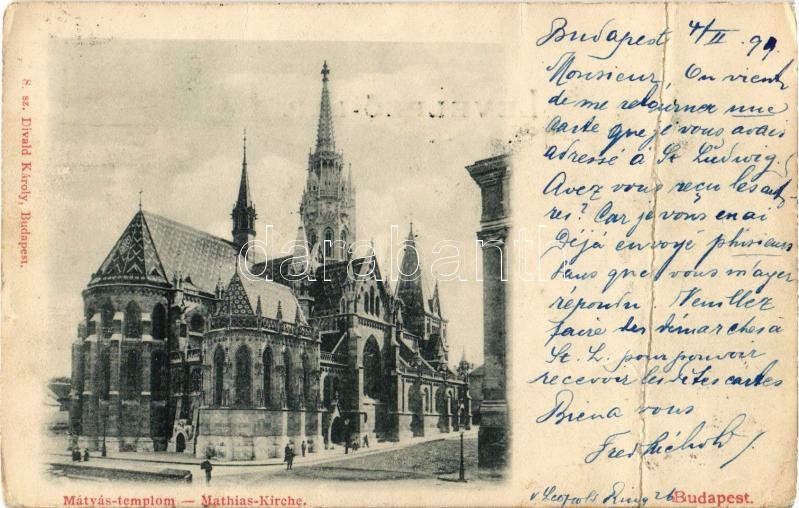 8. sz. Divald Károly, Budapest.
Budapest 4/II 99
Monsieur, On vient
de me retourner une
carte que je vous avais
adressé á St Ludwig.
Avez vous reçu les aut-
res? Car je vous en ai
Déjá envoyé plusieurs
sans que vous m'ayez
répondu. Veuillez
faire des démarches á
St. L. pour pouvoir
recevoir les dites cartes
Bien a vous
Fred
Mátyás-templom — Mathias-Kirche.
Budapest.
darabanth.com